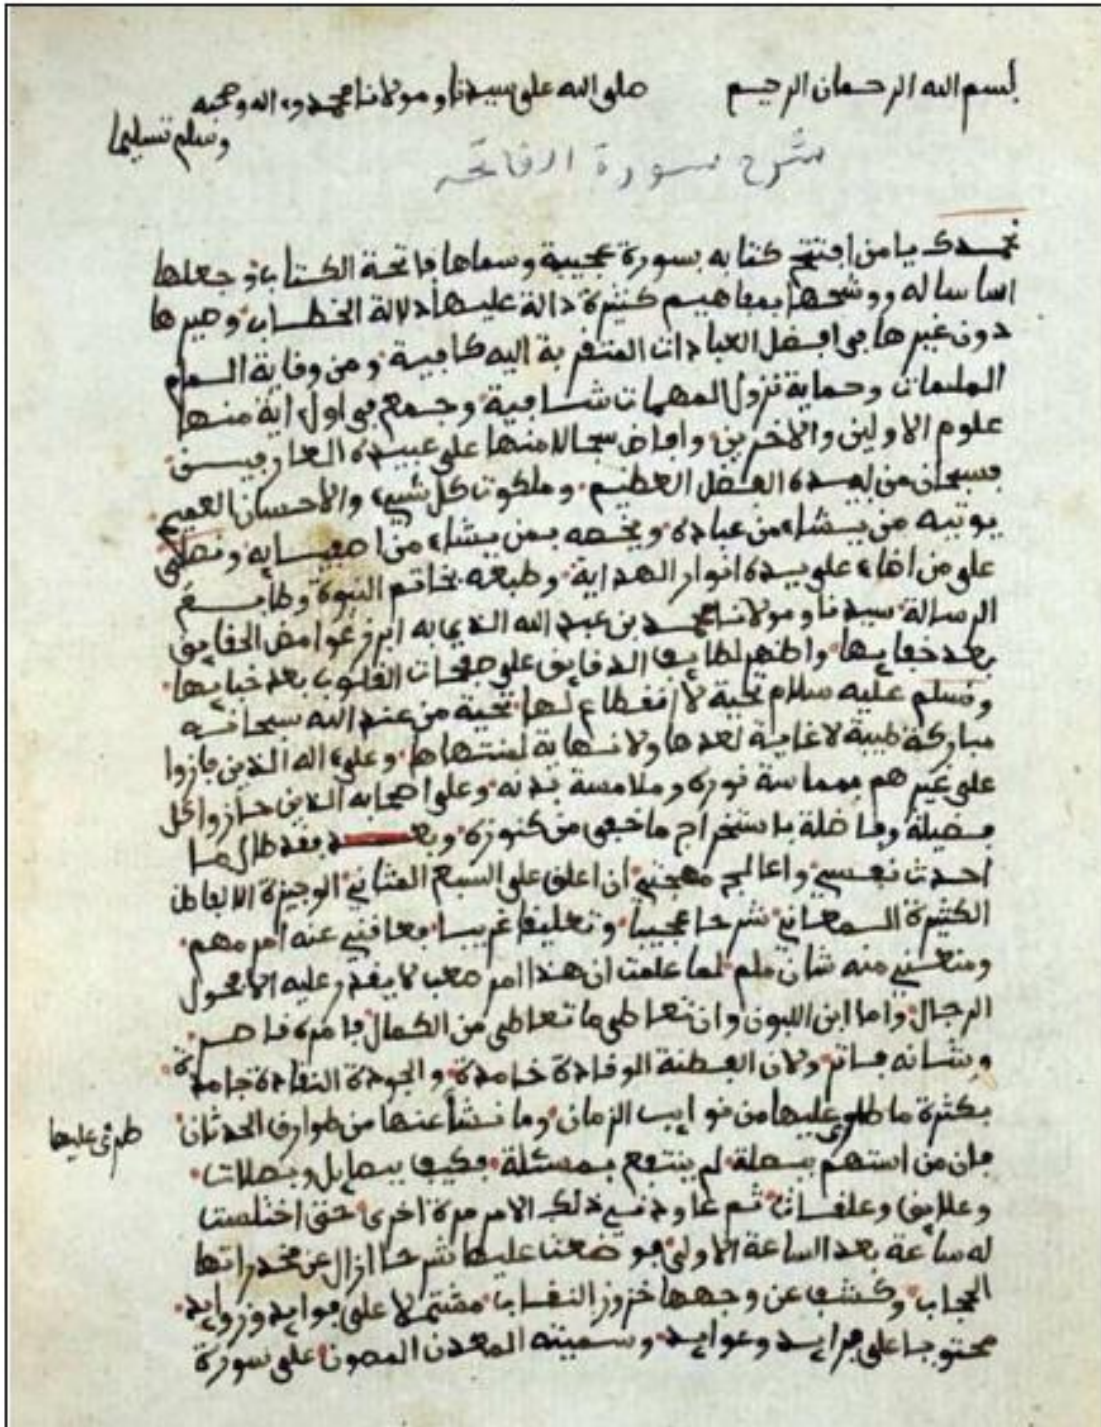 بسم الله الرحمان الرحيم صلى الله على سيدنا ومولانا محمد وءاله وصحبه
وسلم تسليما
شرح سورة الفاتحة
نحمدك يا من افتتح كتابه بسورة عجيبة وسماها فاتحة الكتاب وجعلها
اساسا له ووشحها بمفاهيم كثيرة دالة عليها دلالة الخطاب وصيرها
دون غيرها في افضل العبادات المتقربة اليه كافية ومن وقاية
الملمات وحماية نزول المهمات شافية وجمع في اول ءاية منها
علوم الاولين والاخرين وافاض سجالا منها على عبيده العارفين
فسبحان من بيده الفضل العظيم وملكوت كل شيء والاحسان العميم
يوتيه من يشاء من عباده ويخصه بمن يشاء من اصفيايه ونصلي
على من افاء على يده انوار الهداية وطبعه بخاتم النبوة وطابع
الرسالة سيدنا ومولانا محمد بن عبد الله الذي به ابرز غوامض الحقايق
بعد خفايها واظهر لطايف الدقايق على صفحات القلوب بعد خبايها
ونسلم عليه سلام تحية لا انقطاع لها تحية من عند الله سبحانه
مباركة طيبة لا غاية لعدها ولا نهاية لمنتهاها وعلى ءاله الذين فازوا
على غيرهم بمماسة نوره وملامسة بدنه وعلى اصحابه الذين حازوا كل
فضيلة وفاضلة باستخراج ما خفي من كنوزه وبعد فقد طال ما
احدث نفسي واعالج مهجتي ان اعلق على السبع المثاني الوجيزة الالفاظ
الكثيرة المعاني شرحا عجيبا وتعليقا غريبا فعاقني عنه امر مهم
ومنعني منه شان ملم لما علمت ان هذا امر صعب لا يقدر عليه الا فحول
الرجال واما ابن اللبون وان تعاطى ما تعاطى من الكمال فامره قاصر
وشانه فاتر ولان الفطنة الوقادة خامدة والجودة النقادة جامدة
بكثرة ما طرى عليها من نوايب الزمان وما نشا عنها من طوارق الحدثان
طرى عليها
فان من استهم ببصلة لم ينتفع بمسئلة فكيف ببصايل وبصلات
وعلايق وعلقات ثم عاودني ذلك الامر مرة اخرى حتى اختلست
له ساعة بعد الساعة الاولى فوضعت عليها شرحا ازال عن مخدراتها
الحجاب وكشف عن وجهها خزوز النقاب مشتملا على فوايد وزوايد
محتويا على فرايد وعوايد وسميته المعدن المصون على سورة